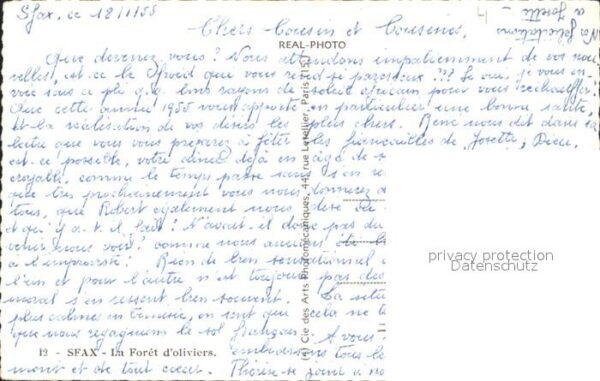 Sfax, ce 18/1/55
Nos félicitations
à Josette -
Chers Cousin et Cousines,
REAL-PHOTO
Que devenez vous? Nous attendons impatiemment de vos nou-
velles, est-ce le froid qui vous rend si paresseux ??? Si oui, je vous en-
voie sous ce pli q.q. bons rayons de soleil africain pour vous réchauffer.
Que cette année 1955 vous apporte en particulier une bonne santé,
et la réalisation de vos désirs les plus chers. René nous dit dans sa
lettre que vous vous préparez à fêter les fiançailles de Josette, Dieu,
est-ce possible, votre aînée déjà en âge de
croyable, comme le temps passe sans s'en re
que très prochainement vous nous donnerez
tous, que Robert également nous
et qu'y a-t-il fait? N'avait-il donc pas
venir nous voir? comme nous aurions été
à l'improviste! Rien de bien sensationnel
l'un et pour l'autre n'est toujours pas des
moral s'en ressent bien souvent. La situ
plus calme en Tunisie, on sent que cela ne
que nous regagnerons le sol français. A vous
embrassons tous le
ment et de tout cœur. Thérèse se joint à no
12 - SFAX - La Forêt d'oliviers.
(c) Cie des Arts Photomécaniques, 44, rue Letellier, Paris (15e)
privacy protection
Datenschutz